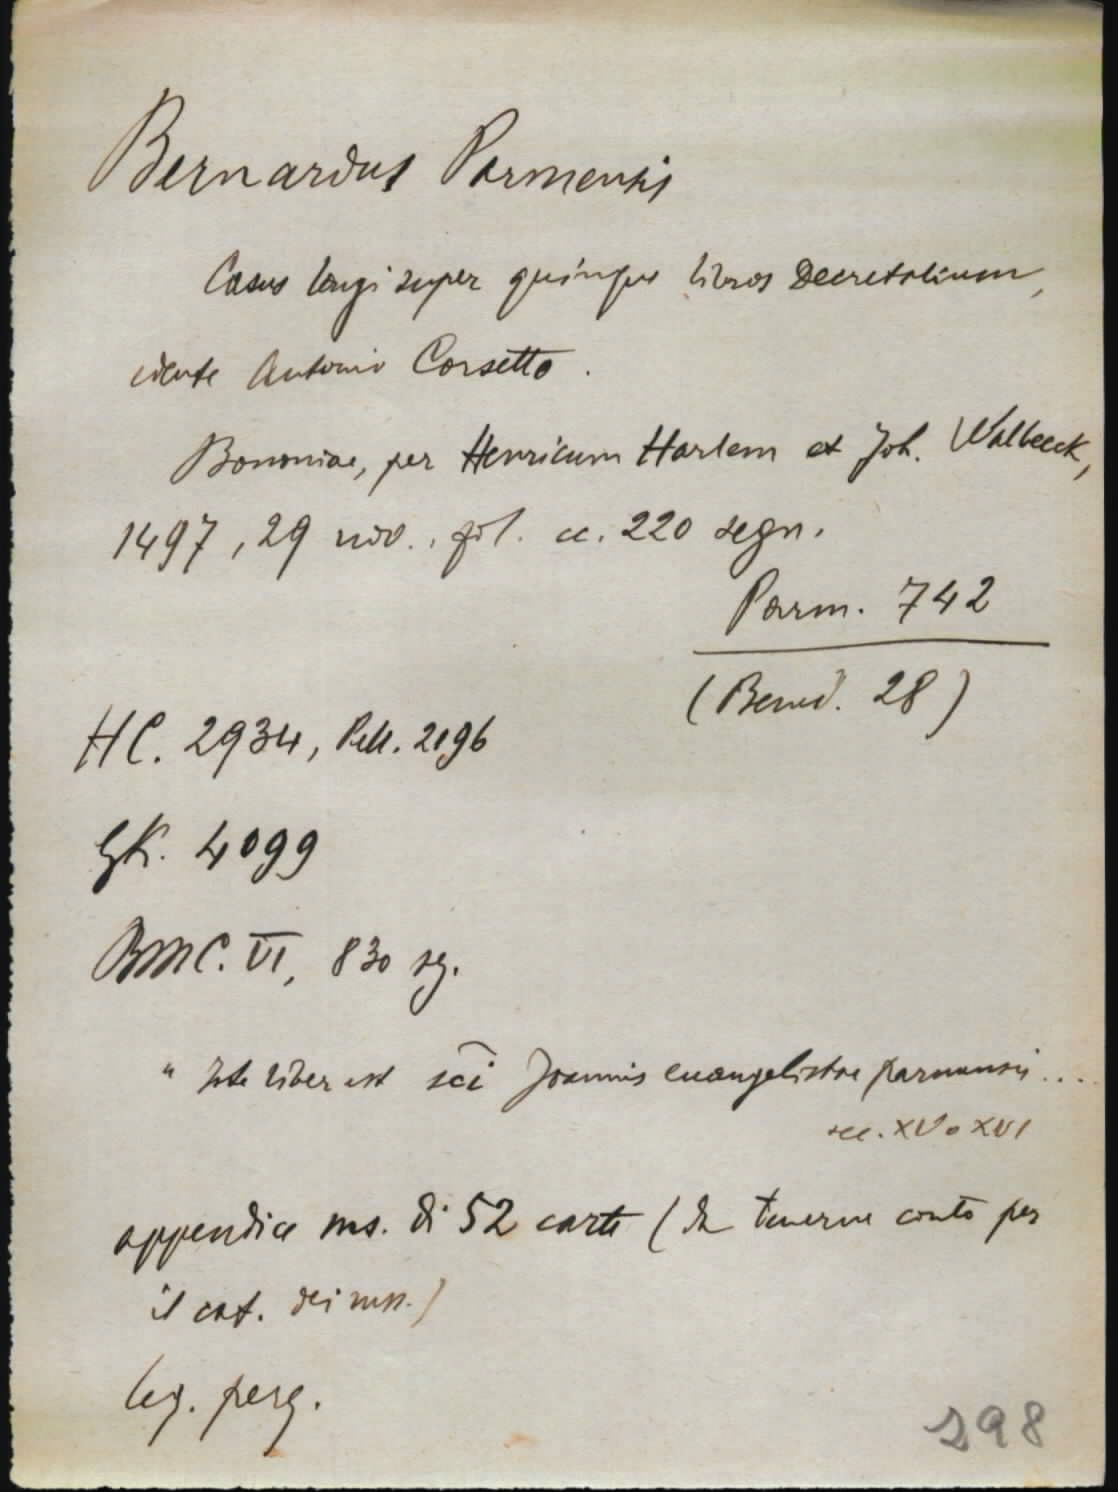 Bernardus Parmensis
Casus longi super quinque libros Decretalium,
edente Antonio Corsetto.
Bononiae, per Henricum Harlem et Joh. Walbeeck,
1497, 29 nov., fol. cc. 220 segn.
Parm. 742
(Bened. 28)
HC. 2934, Pell. 2196
GK. 4099
BMC. VI, 830 sg.
"Iste liber est sci Joannis euangelistae parmensis....
sec. XV o XVI
appendice ms. di 52 carte (da tenerne conto per
il cat. dei mss.)
leg. perg.
298